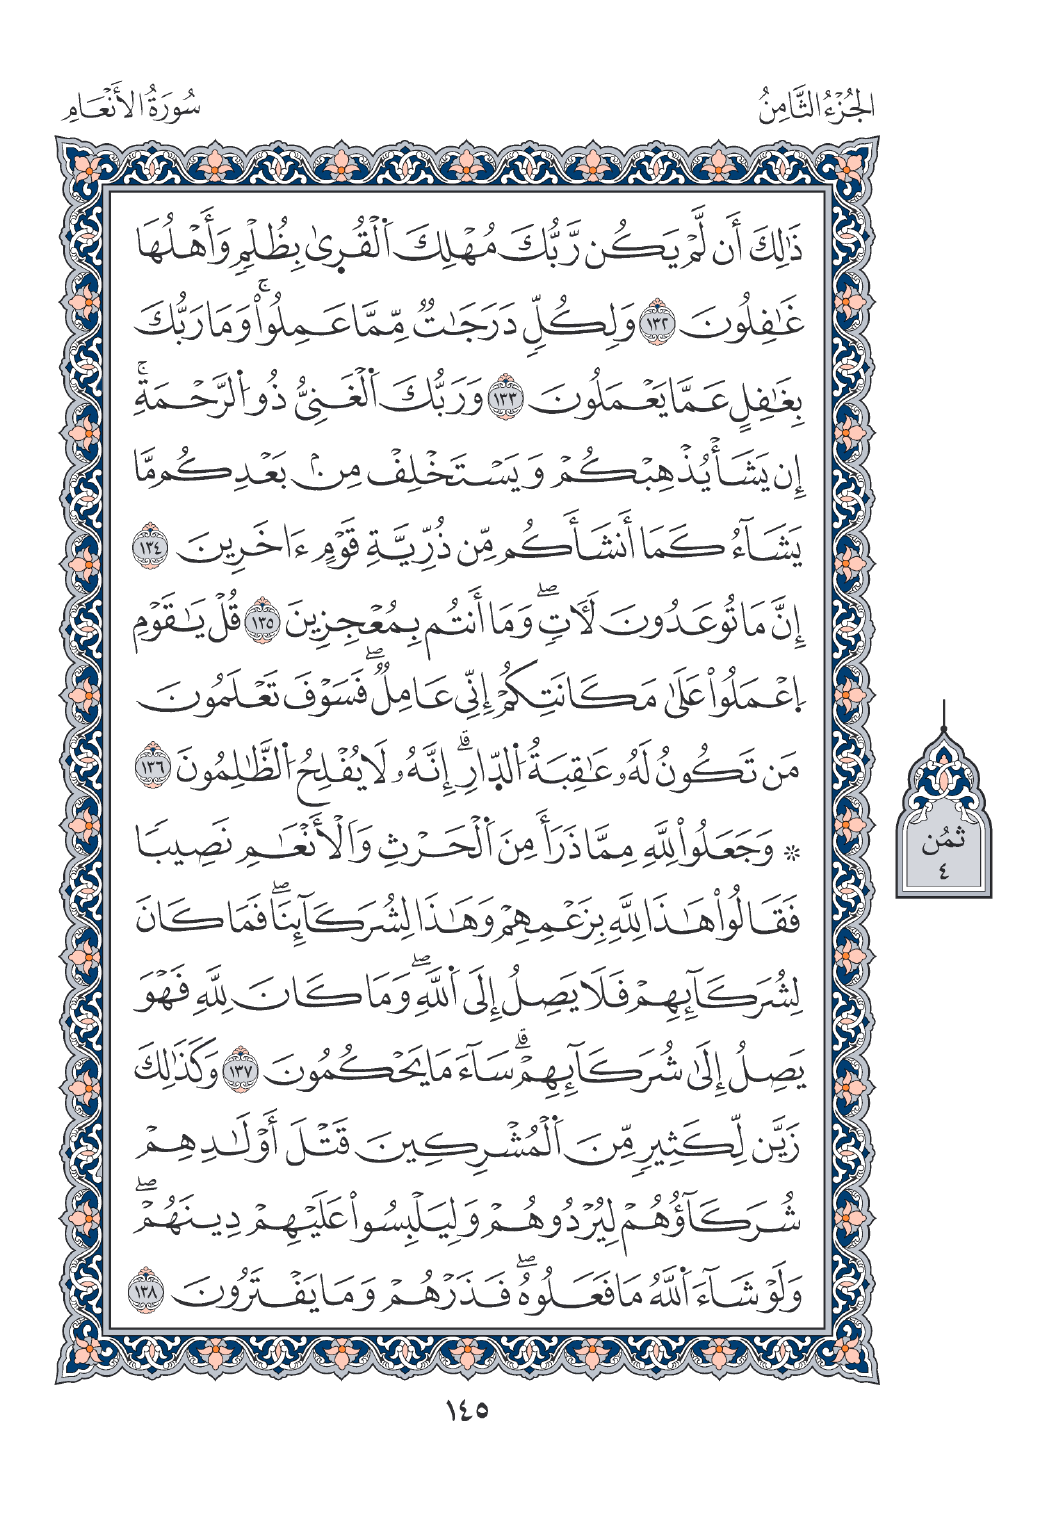 الجُزْءُ الثَّامِنُ
سُورَةُ الأَنْعَامِ
ذَٰلِكَ أَن لَّمْ يَكُن رَّبُّكَ مُهْلِكَ اَ۬لْقُر۪ىٰ بِظُلْمٖ وَأَهْلُهَا
غَٰفِلُونَ ١٣٢ وَلِكُلّٖ دَرَجَٰتٞ مِّمَّا عَمِلُواْۚ وَمَا رَبُّكَ
بِغَٰفِلٍ عَمَّا يَعْمَلُونَ ١٣٣ وَرَبُّكَ اَ۬لْغَنِيُّ ذُو اُ۬لرَّحْمَةِۚ
إِن يَشَأْ يُذْهِبْكُمْ وَيَسْتَخْلِفْ مِنۢ بَعْدِكُم مَّا
يَشَآءُ كَمَا أَنشَأَكُم مِّن ذُرِّيَّةِ قَوْمٍ ءَاخَرِينَ ١٣٤
إِنَّ مَا تُوعَدُونَ لَأٓتٖۖ وَمَا أَنتُم بِمُعْجِزِينَ ١٣٥ قُلْ يَٰقَوْمِ
اِ۪عْمَلُواْ عَلَىٰ مَكَانَتِكُمْ إِنِّي عَامِلٞۖ فَسَوْفَ تَعْلَمُونَ
مَن تَكُونُ لَهُۥ عَٰقِبَةُ اُ۬لدّ۪ارِۗ إِنَّهُۥ لَا يُفْلِحُ اُ۬لظَّٰلِمُونَ ١٣٦
۞ وَجَعَلُواْ لِلَّهِ مِمَّا ذَرَأَ مِنَ اَ۬لْحَرْثِ وَالْأَنْعَٰمِ نَصِيبٗا
فَقَالُواْ هَٰذَا لِلَّهِ بِزَعْمِهِمْ وَهَٰذَا لِشُرَكَآئِنَاۖ فَمَا كَانَ
لِشُرَكَآئِهِمْ فَلَا يَصِلُ إِلَى اَ۬للَّهِۖ وَمَا كَانَ لِلَّهِ فَهْوَ
يَصِلُ إِلَىٰ شُرَكَآئِهِمْۗ سَآءَ مَا يَحْكُمُونَ ١٣٧ وَكَذَٰلِكَ
زَيَّن لِّكَثِيرٖ مِّنَ اَ۬لْمُشْرِكِينَ قَتْلَ أَوْلَٰدِهِمْ
شُرَكَآؤُهُمْ لِيُرْدُوهُمْ وَلِيَلْبِسُواْ عَلَيْهِمْ دِينَهُمْۖ
وَلَوْ شَآءَ اَ۬للَّهُ مَا فَعَلُوهُۖ فَذَرْهُمْ وَمَا يَفْتَرُونَ ١٣٨
ثمُن
٤
١٤٥